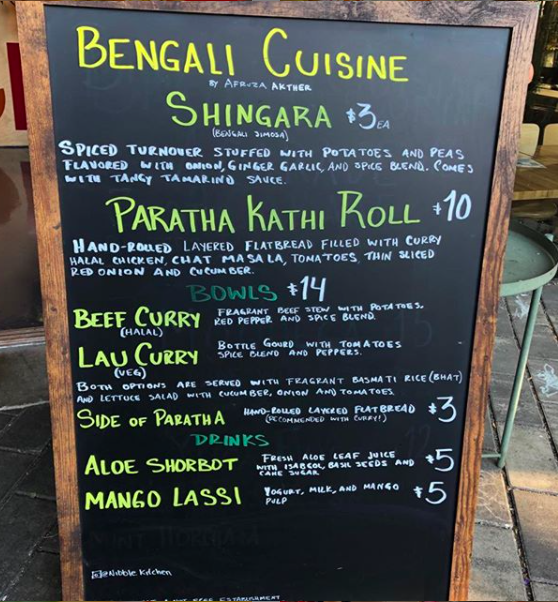 BENGALI CUISINE
BY AFRUZA AKTHER
SHINGARA $3 EA
(BENGALI SIMOSA)
SPICED TURNOVER STUFFED WITH POTATOES AND PEAS
FLAVORED WITH ONION, GINGER GARLIC, AND SPICE BLEND. COMES
WITH TANGY TAMARIND SAUCE.
PARATHA KATHI ROLL $10
HAND-ROLLED LAYERED FLATBREAD FILLED WITH CURRY
HALAL CHICKEN, CHAT MASALA, TOMATOES, THIN SLICED
RED ONION AND CUCUMBER.
BOWLS $14
BEEF CURRY FRAGRANT BEEF STEW WITH POTATOES,
(HALAL) RED PEPPER AND SPICE BLEND.
LAU CURRY BOTTLE GOURD WITH TOMATOES
(VEG) SPICE BLEND AND PEPPERS.
BOTH OPTIONS ARE SERVED WITH FRAGRANT BASMATI RICE (BHAT)
AND LETTUCE SALAD WITH CUCUMBER, ONION AND TOMATOES.
SIDE OF PARATHA HAND-ROLLED LAYERED FLATBREAD $3
(RECOMMENDED WITH CURRY!)
DRINKS
ALOE SHORBOT FRESH ALOE LEAF JUICE $5
WITH ISABGOL, BASIL SEEDS AND
CANE SUGAR
MANGO LASSI YOGURT, MILK, AND MANGO $5
PULP
@Nibble Kitchen
ESTABLISHMENT